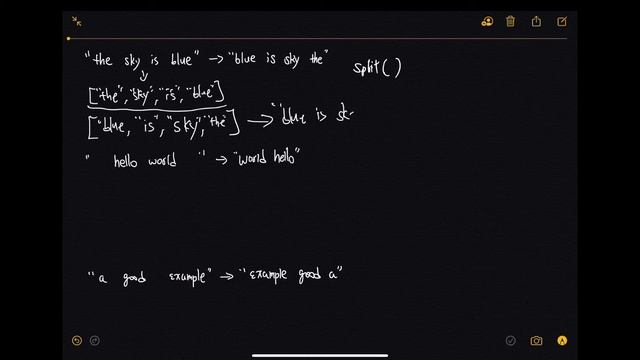 "the sky is blue" → "blue is sky the"
split()
["the", "sky", "is", "blue"]
["blue, "is", "sky", "the"] → "blue is sk
" hello world " → "world hello"
"a good example" → "example good a"